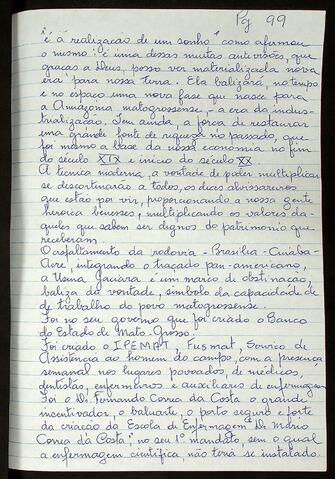 Pg 99
"é a realização de um sonho" como afirmou
o mesmo: é uma dessas muitas antevisões, que
graças a Deus, posso ver materializada nova
era para nossa terra. Ela balizará, no tempo
e no espaço uma nova fase que nasce para
a Amazônia matogrossense, - a era da indus-
trialização. Tem ainda, a força de restaurar
uma grande fonte de riqueza no passado, que
foi mesmo a base da nossa economia no fim
do século XIX e início do século XX.
A técnica moderna, a vontade de poder multiplicar
se descortinarão a todos, os dias alvissareiros
que estão por vir, proporcionando a nossa gente
heroica benesses, multiplicando os valores da-
queles que sabem ser dignos do patrimonio que
receberam.
O asfaltamento da rodovia - Brasilia - Cuiabá-
Acre, integrando o traçado pan-americano,
a Usina Jaciara é um marco de obstinação,
baliza de vontade, simbolo da capacidade de
de trabalho do povo matogrossense.
Foi no seu governo que foi criado o Banco
do Estado de Mato-Grosso.
Foi criado o IPEMAT, Fusmat, Serviço de
Assistência ao homem do campo, com a presença
semanal nos lugares povoados, de médicos,
dentistas, enfermeiros e auxiliares de enfermagem
Foi o Dr. Fernando Correa da Costa o grande
incentivador, o baluarte, o porto seguro e forte
da criação da Escola de Enfermagem "Dr. Mario
Correa da Costa", no seu 1º mandato, sem o qual
a enfermagem científica, não teria se instalado